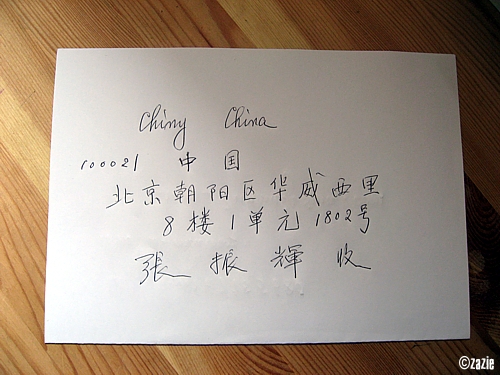 Chiny China
100021 中国
北京朝阳区华威西里
8楼1单元1802号
張振輝 收
©zazie